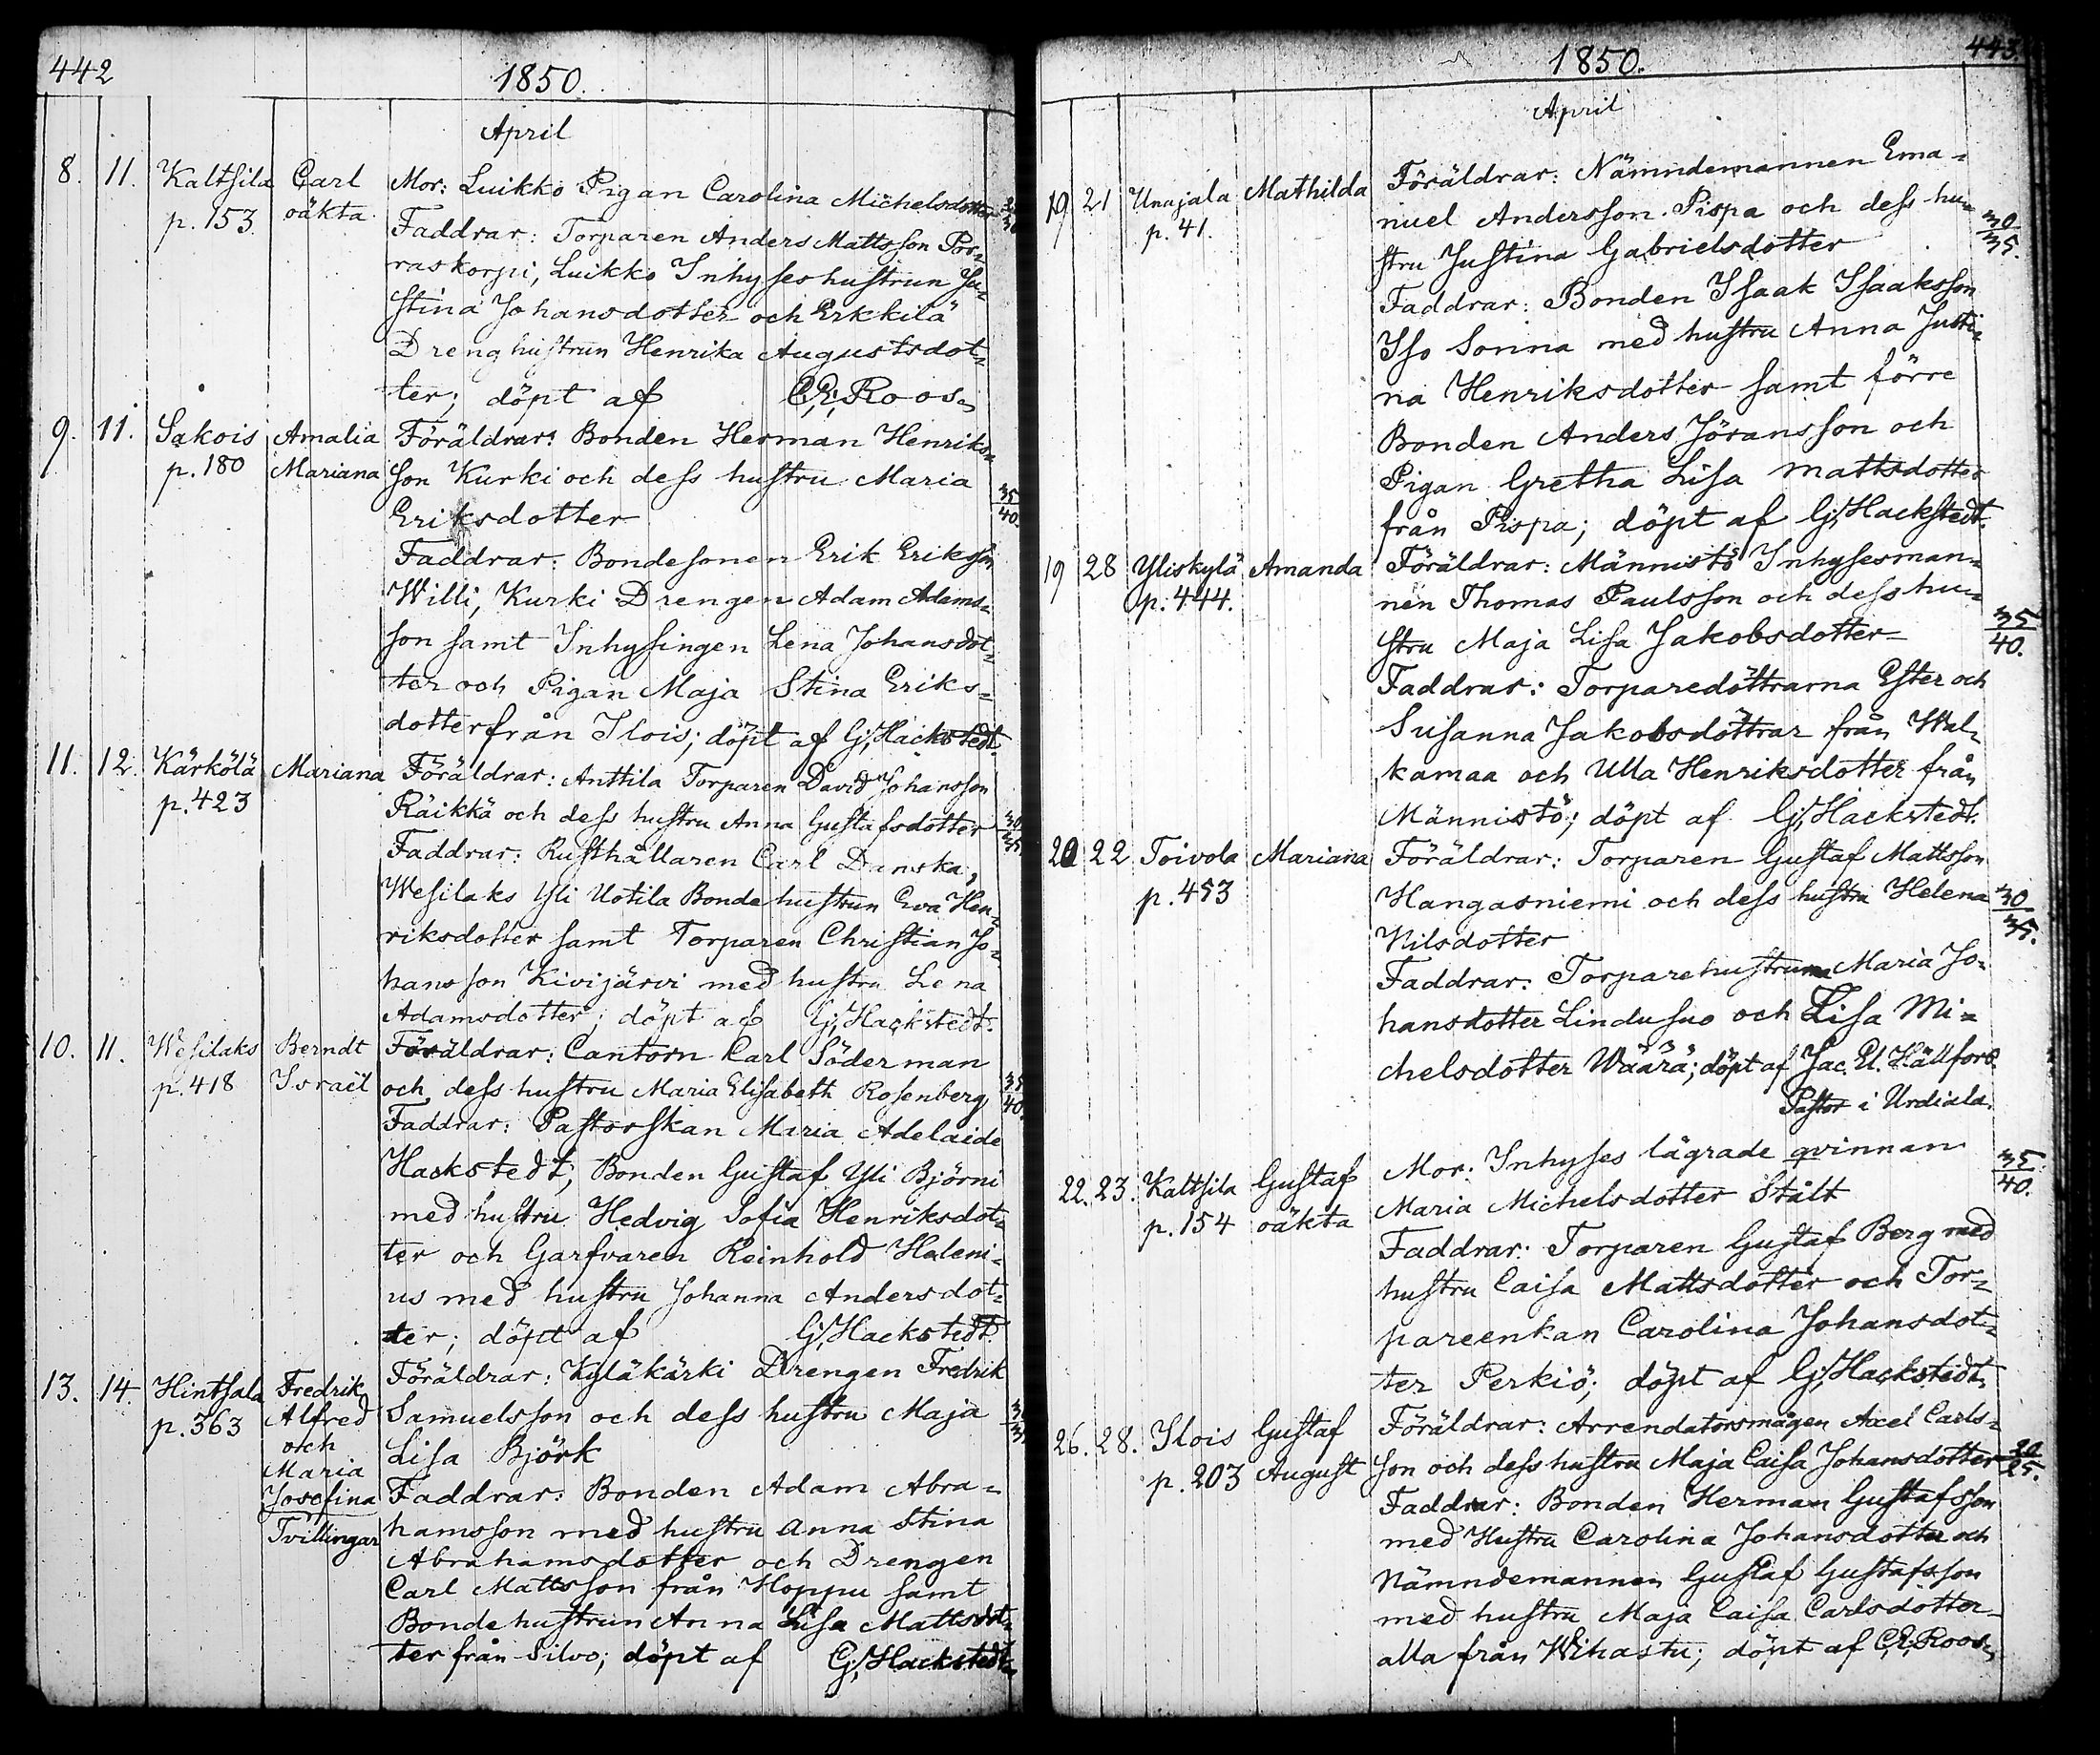 442
1850.
April
8. 11. Kaltsila Carl Mor: Luikko Pigan Carolina Michelsdotter
p. 153. oäkta. Faddrar: Torparen Anders Mattsson Por-
raskorpi, Luikko Inhyses hustrun Ju-
stina Johansdotter och Erkkilä
Dreng hustrun Henrika Augustsdot-
ter; döpt af C,E,Roos.
9. 11. Sakois Amalia Föräldrar: Bonden Herman Henriks-
p. 180 Mariana son Kurki och dess hustru Maria 35
Eriksdotter 40.
Faddrar: Bondesonen Erik Eriksson
Willi, Kurki Drengen Adam Adams-
son samt Inhysingen Lena Johansdot-
ter och Pigan Maja Stina Eriks-
dotter från Ilois; döpt af Gj,Hackstedt.
11. 12. Kärkölä Mariana Föräldrar: Anttila Torparen David Johansson
p. 423 Räikkä och dess hustru Anna Gustafsdotter 30
Faddrar: Rusthållaren Carl Danska, 35
Wesilaks Yli Uotila Bonde hustrun Eva Hen-
riksdotter samt Torparen Christian Jo-
hansson Kivijärvi med hustru Lena
Adamsdotter; döpt af Gj,Hackstedt.
10. 11. Wesilaks Berndt Föräldrar: Cantorn Carl Söderman
p. 418 Israël och dess hustru Maria Elisabeth Rosenberg 35
40.
Faddrar: Pastorskan Maria Adelaide
Hackstedt; Bonden Gustaf Yli Björni
med hustru Hedvig Sofia Henriksdot-
ter och Garfvaren Reinhold Haleni-
us med hustru Johanna Andersdot-
ter; döpt af Gj,Hackstedt.
13. 14. Hintsala Fredrik Föräldrar: Kyläkärki Drengen Fredrik
p. 363 Alfred Samuelsson och dess hustru Maja
och Lisa Björk
Maria
Josefina Faddrar: Bonden Adam Abra-
Tvillingar hamsson med hustru Anna Stina
Abrahamsdotter och Drengen
Carl Mattsson från Hoppu samt
Bonde hustrun Anna Lisa Mattsdot-
ter från Silvo; döpt af Gj,Hackstedt.
443.
1850.
April
19 21 Unajala Mathilda Föräldrar: Nämndemannen Ema-
p. 41. nuel Andersson Pispa och dess hu- 30
stru Justina Gabrielsdotter 35.
Faddrar: Bonden Isaak Isaaksson
Iso Sonna med hustru Anna Justi-
na Henriksdotter samt förre
Bonden Anders Jöransson och
Pigan Gretha Lisa Mattsdotter
från Pispa; döpt af Gj,Hackstedt.
19 28 Yliskylä Amanda Föräldrar: Männistö Inhysesman-
p. 444. nen Thomas Paulsson och dess hu- 35
stru Maja Lisa Jakobsdotter 40.
Faddrar: Torparedöttrarna Ester och
Susanna Jakobsdöttrar från Wal-
kamaa och Ulla Henriksdotter från
Männistö; döpt af Gj,Hackstedt.
20 22 Toivola Mariana Föräldrar: Torparen Gustaf Mattsson
p. 453 Hangasniemi och dess hustru Helena 30
Nilsdotter 35.
Faddrar: Torparehustrurna Maria Jo-
hansdotter Lindusuo och Lisa Mi-
chelsdotter Wäärä; döpt af Jac. U. Hällfors.
Pastor i Urdiala.
22. 23. Kaltsila Gustaf Mor: Inhyses lägrade qvinnan 35
p. 154 oäkta Maria Michelsdotter Stålt 40.
Faddrar: Torparen Gustaf Berg med
hustru Caisa Mattsdotter och Tor-
pareenkan Carolina Johansdot-
ter Perkiö; döpt af Gj,Hackstedt.
26. 28. Ilois Gustaf Föräldrar: Arrendatorsmågen Axel Carls-
p. 203 August son och dess hustru Maja Caisa Johansdotter 20
25.
Faddrar: Bonden Herman Gustafsson
med Hustru Carolina Johansdotter och
Nämndemannen Gustaf Gustafsson
med hustru Maja Caisa Carlsdotter
alla från Wihastu; döpt af C,E,Roos.